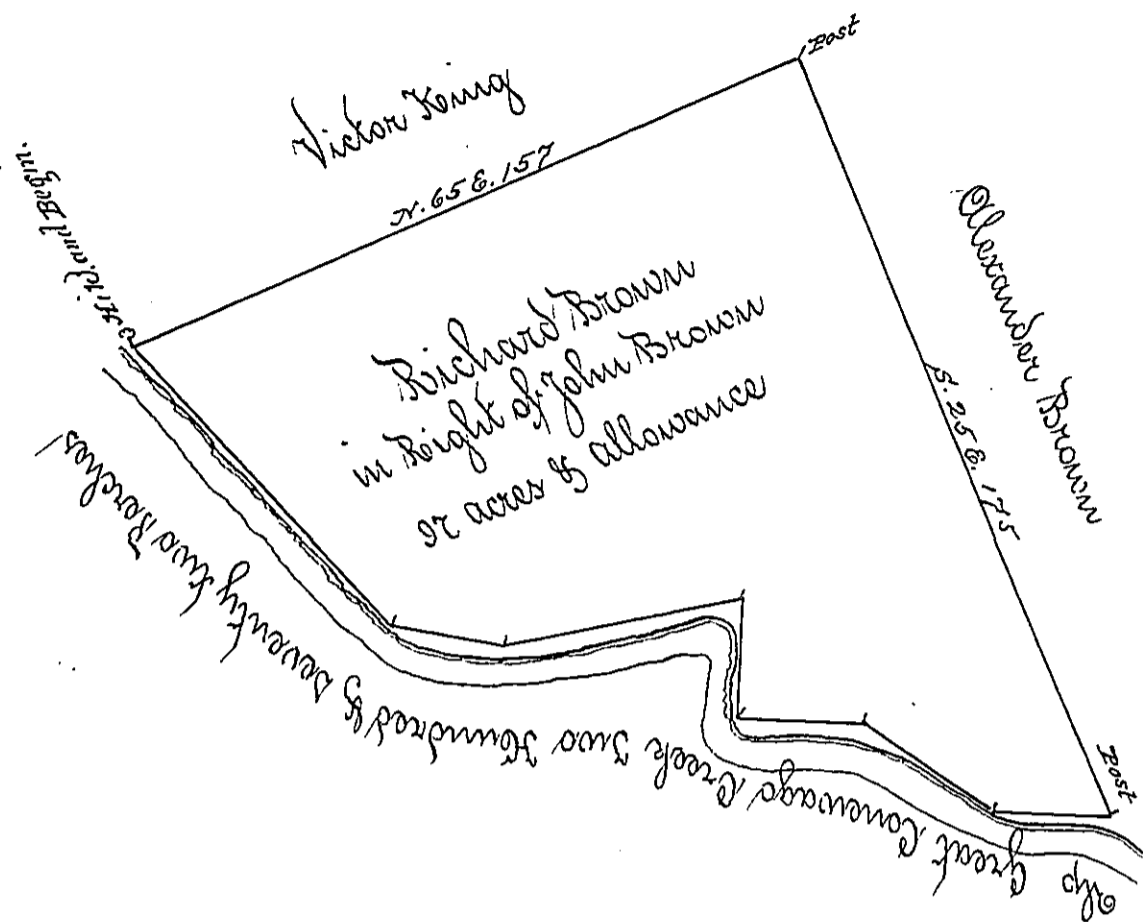 Post
Victor King
and Begin.
N. 65 E. 157
Alexander Brown
S. 25 E. 175
Richard Brown
in Right of John Brown
acres & allowance
Post
Up Great Conewago Creek Two Hundred & Seventy two Perches